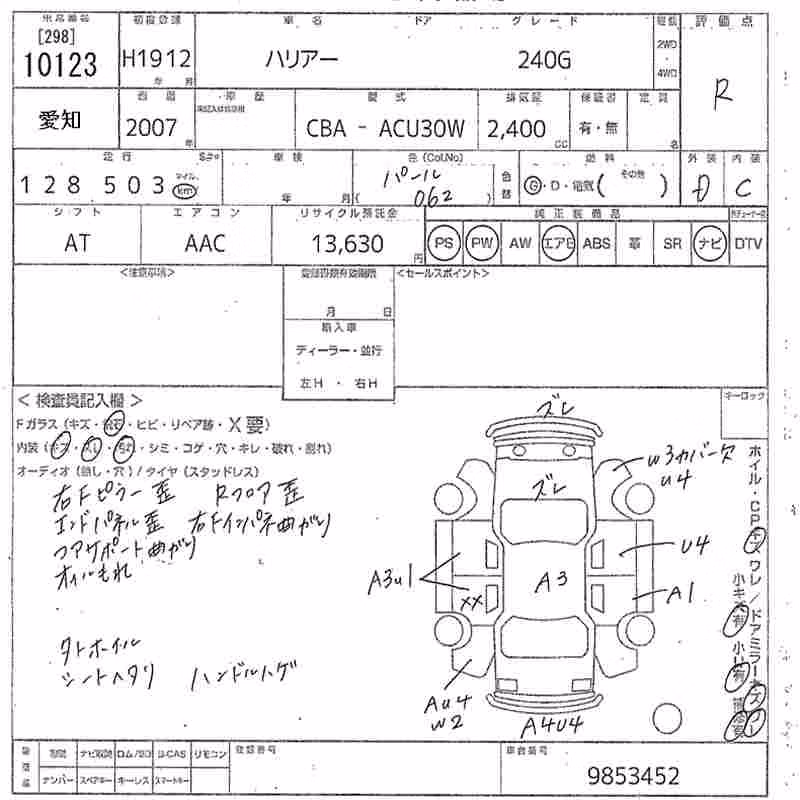 車名 ドア グレード 評価点
[298]
10123 H1912 ハリアー 240G 2WD・4WD R
年 月
愛知 2007 年 型式 排気量 保証書 定員
CBA - ACU30W 2,400 CC 有・無
走行 車検 色(Col.No) 燃料 外装 内装
128503 マイル km 年 月 パール (062) 色替 G・D・電気(その他) D C
シフト エアコン リサイクル預託金 純正装備品
AT AAC 13,630 円 PS PW AW エアB ABS 革 SR ナビ DTV
<注意事項> <セールスポイント>
月 日
輸入車
ディーラー・並行
左H・右H
<検査員記入欄> キーロック
Fガラス(キズ・飛石・ヒビ・リペア跡・X要)
内装(キズ・スレ・汚れ・シミ・コゲ・穴・キレ・破れ・割れ)
オーディオ(無し・穴)/タイヤ(スタッドレス)
右Fピラー歪 Rフロア歪
エンドパネル歪 右Fインパネ曲がり
コアサポート曲がり
オイルもれ
タトホイル
シートヘタリ ハンドルハゲ
ズレ
ズレ
W3カバー欠
U4
A3U1
XX
A3
U4
A1
AU4
W2
A4U4
ホイル・CPキズ ワレ/ドアミラーキズ
小キズ有 小凹有
ナンバー スペアキー キーレス スマートキー
ナビ取説 B-CAS リモコン
登録番号 車台番号
9853452